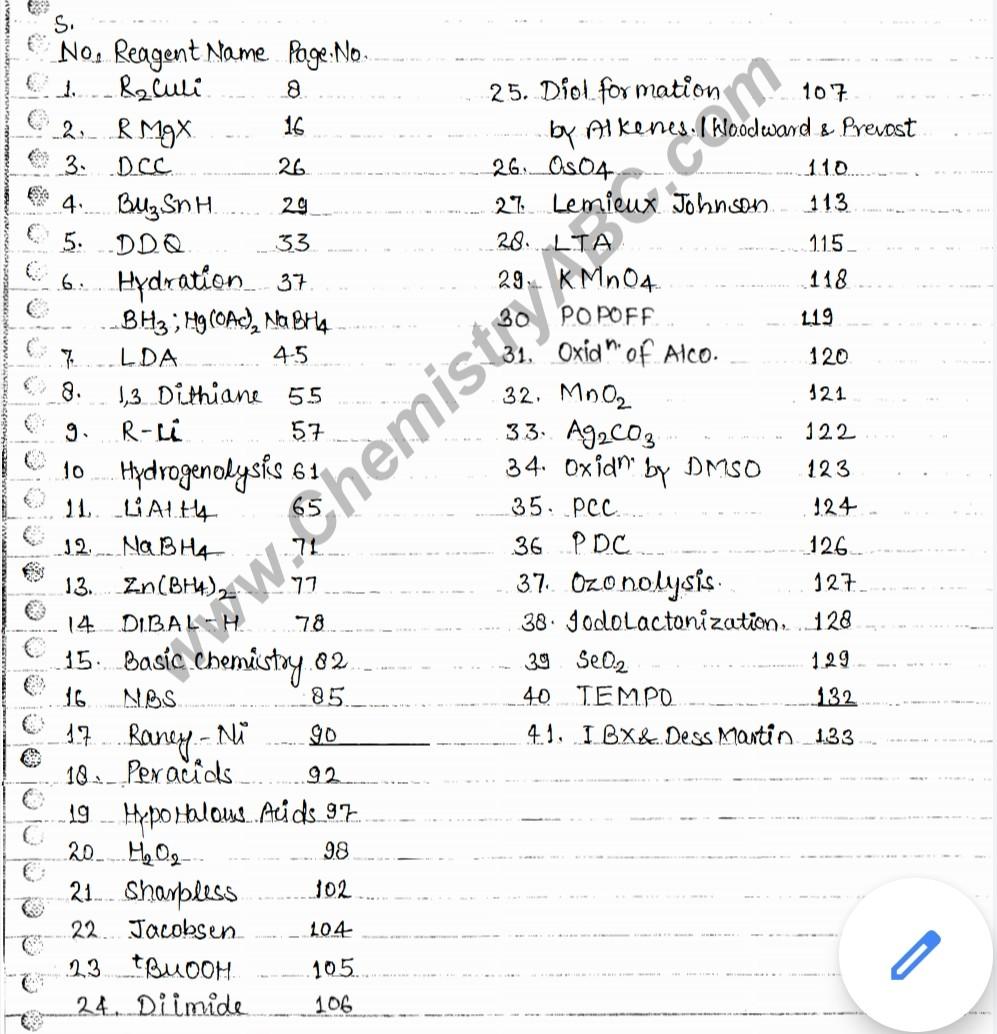 S.
No. Reagent Name Page.No.
1. R2CuLi 8
2. RMgX 16
3. DCC 26
4. Bu3SnH 29
5. DDQ 33
6. Hydration 37
BH3; Hg(OAc)2 NaBH4
7. LDA 45
8. 1,3 Dithiane 55
9. R-Li 57
10 Hydrogenolysis 61
11. LiAlH4 65
12. NaBH4 71
13. Zn(BH4)2 77
14 DIBAL-H 78
15. Basic chemistry 82
16 NBS 85
17 Raney-Ni 90
18. Peracids 92
19 HypoHalous Acids 97
20 H2O2 98
21 Sharpless 102
22 Jacobsen 104
23 tBuOOH 105
24. Diimide 106
25. Diol formation 107
by Alkenes. (Woodward & Prevost
26. OsO4 110
27. Lemieux Johnson 113
28. LTA 115
29. KMnO4 118
30 POPOFF 119
31. Oxidn. of Alco. 120
32. MnO2 121
33. Ag2CO3 122
34. Oxidn. by DMSO 123
35. PCC 124
36 PDC 126
37. Ozonolysis. 127
38. IodoLactonization. 128
39 SeO2 129
40 TEMPO 132
41. IBX & Dess Martin 133
www.ChemistryABC.com